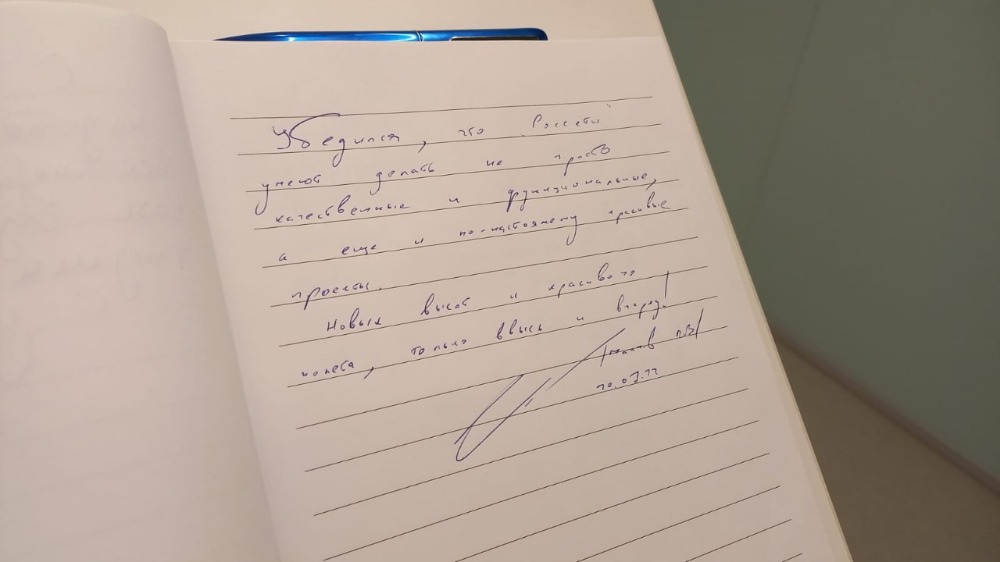 Убедился, что Россети
умеют делать не просто
качественные и функциональные,
а еще и по-настоящему красивые
проекты.
Новых высот и красивого
полета, только ввысь и вперед!